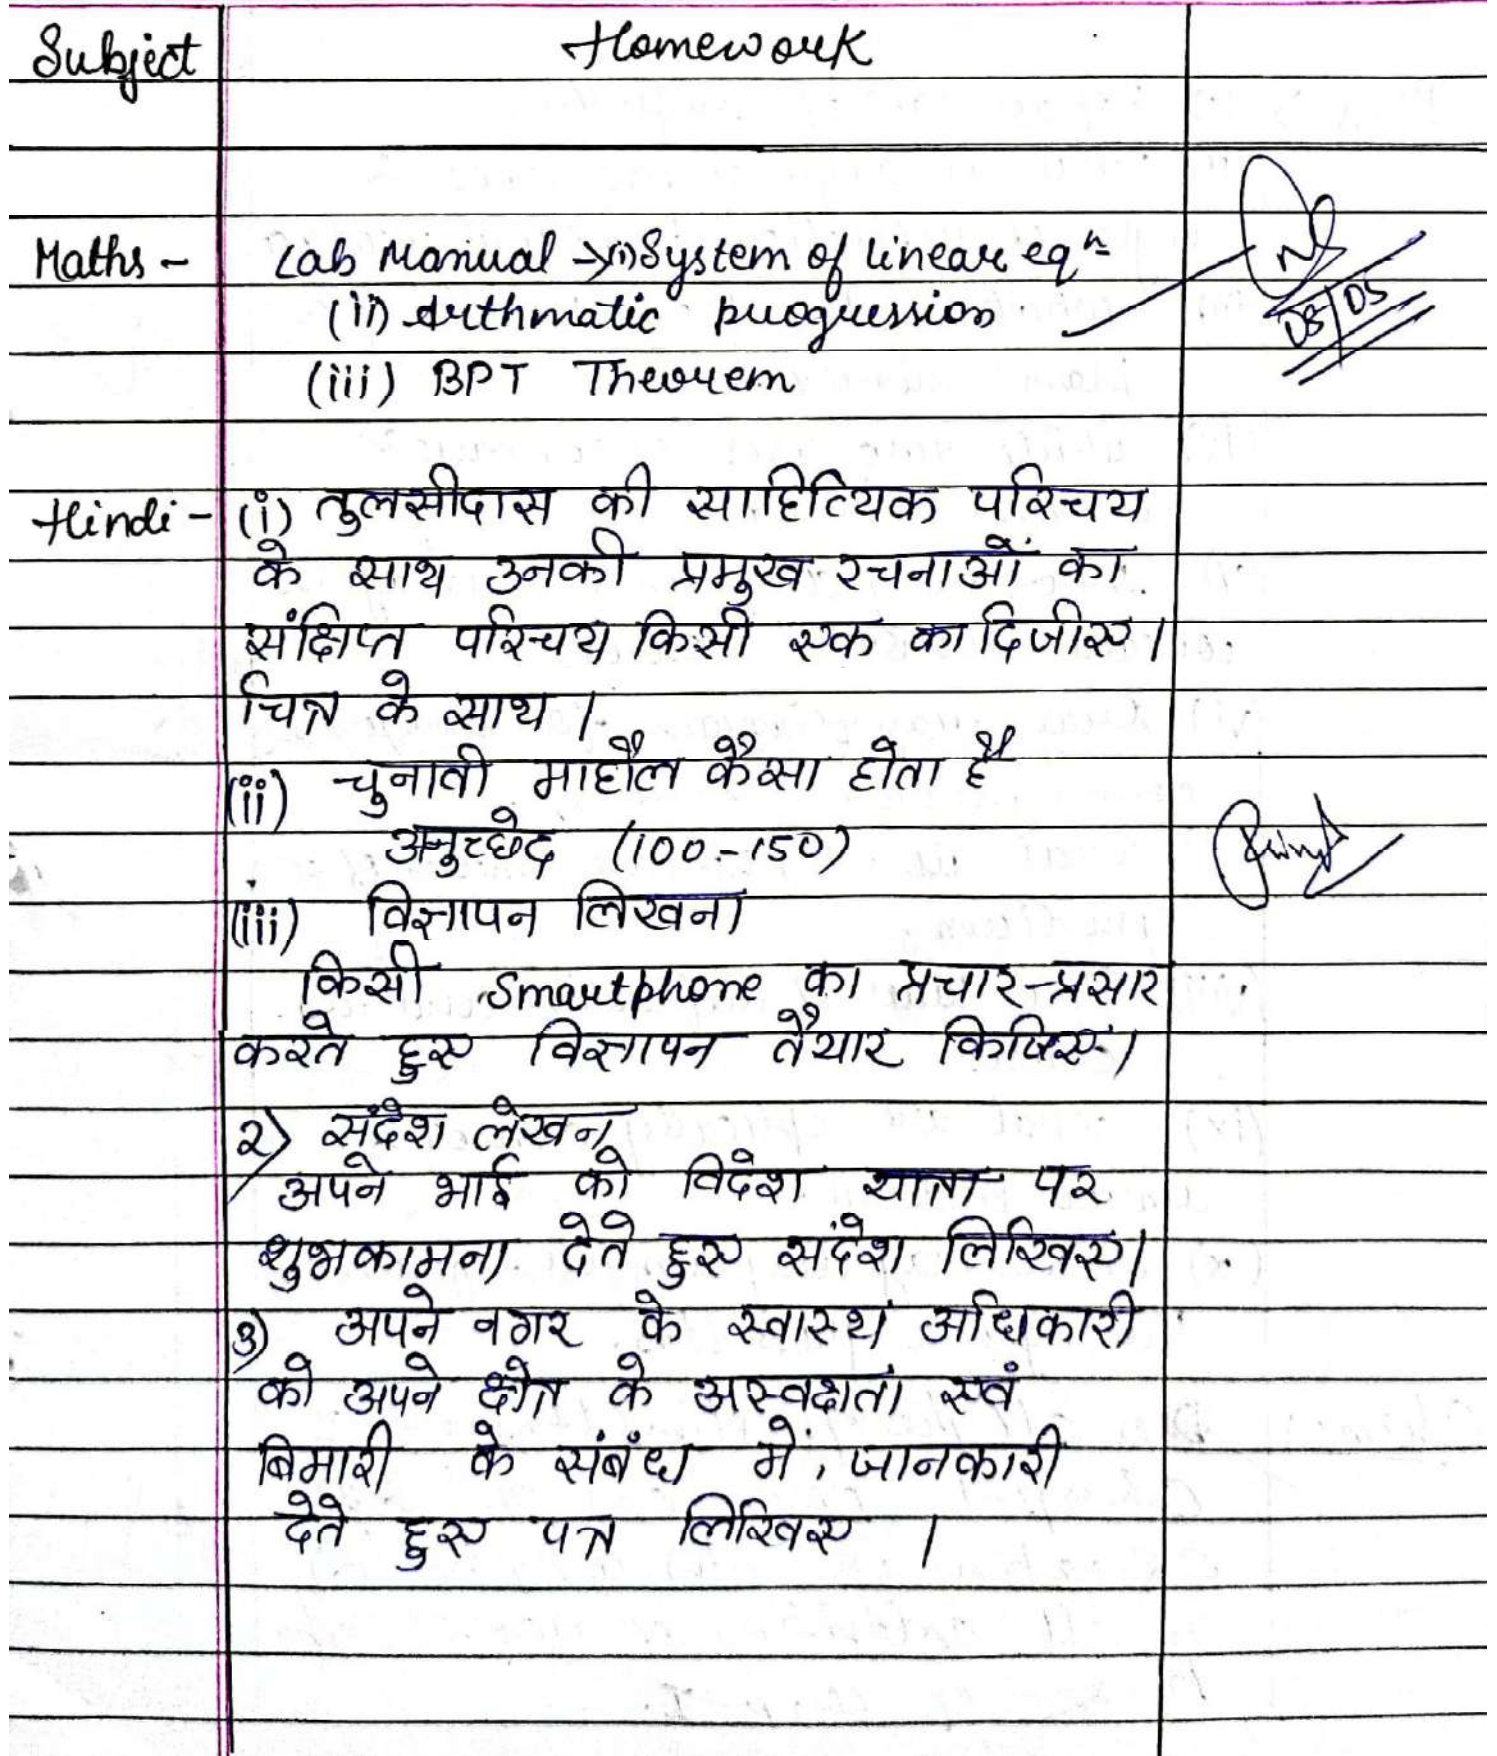 Subject Homework
Maths - Lab Manual → (i) System of linear eqⁿ
(ii) Arthmatic progression
08/05
(iii) BPT Theorem
Hindi - (i) तुलसीदास की साहित्यिक परिचय
के साथ उनकी प्रमुख रचनाओं का
संक्षिप्त परिचय किसी एक का दिजीए।
चित्र के साथ।
(ii) चुनावी माहौल कैसा होता है
अनुच्छेद (100-150)
(iii) विज्ञापन लिखना
किसी Smartphone का प्रचार-प्रसार
करते हुए विज्ञापन तैयार किजिए।
2) संदेश लेखन
अपने भाई को विदेश यात्रा पर
शुभकामना देते हुए संदेश लिखिए।
3) अपने नगर के स्वास्थ अधिकारी
को अपने क्षेत्र के अस्वक्षता एवं
बिमारी के संबंध में जानकारी
देते हुए पत्र लिखिए।